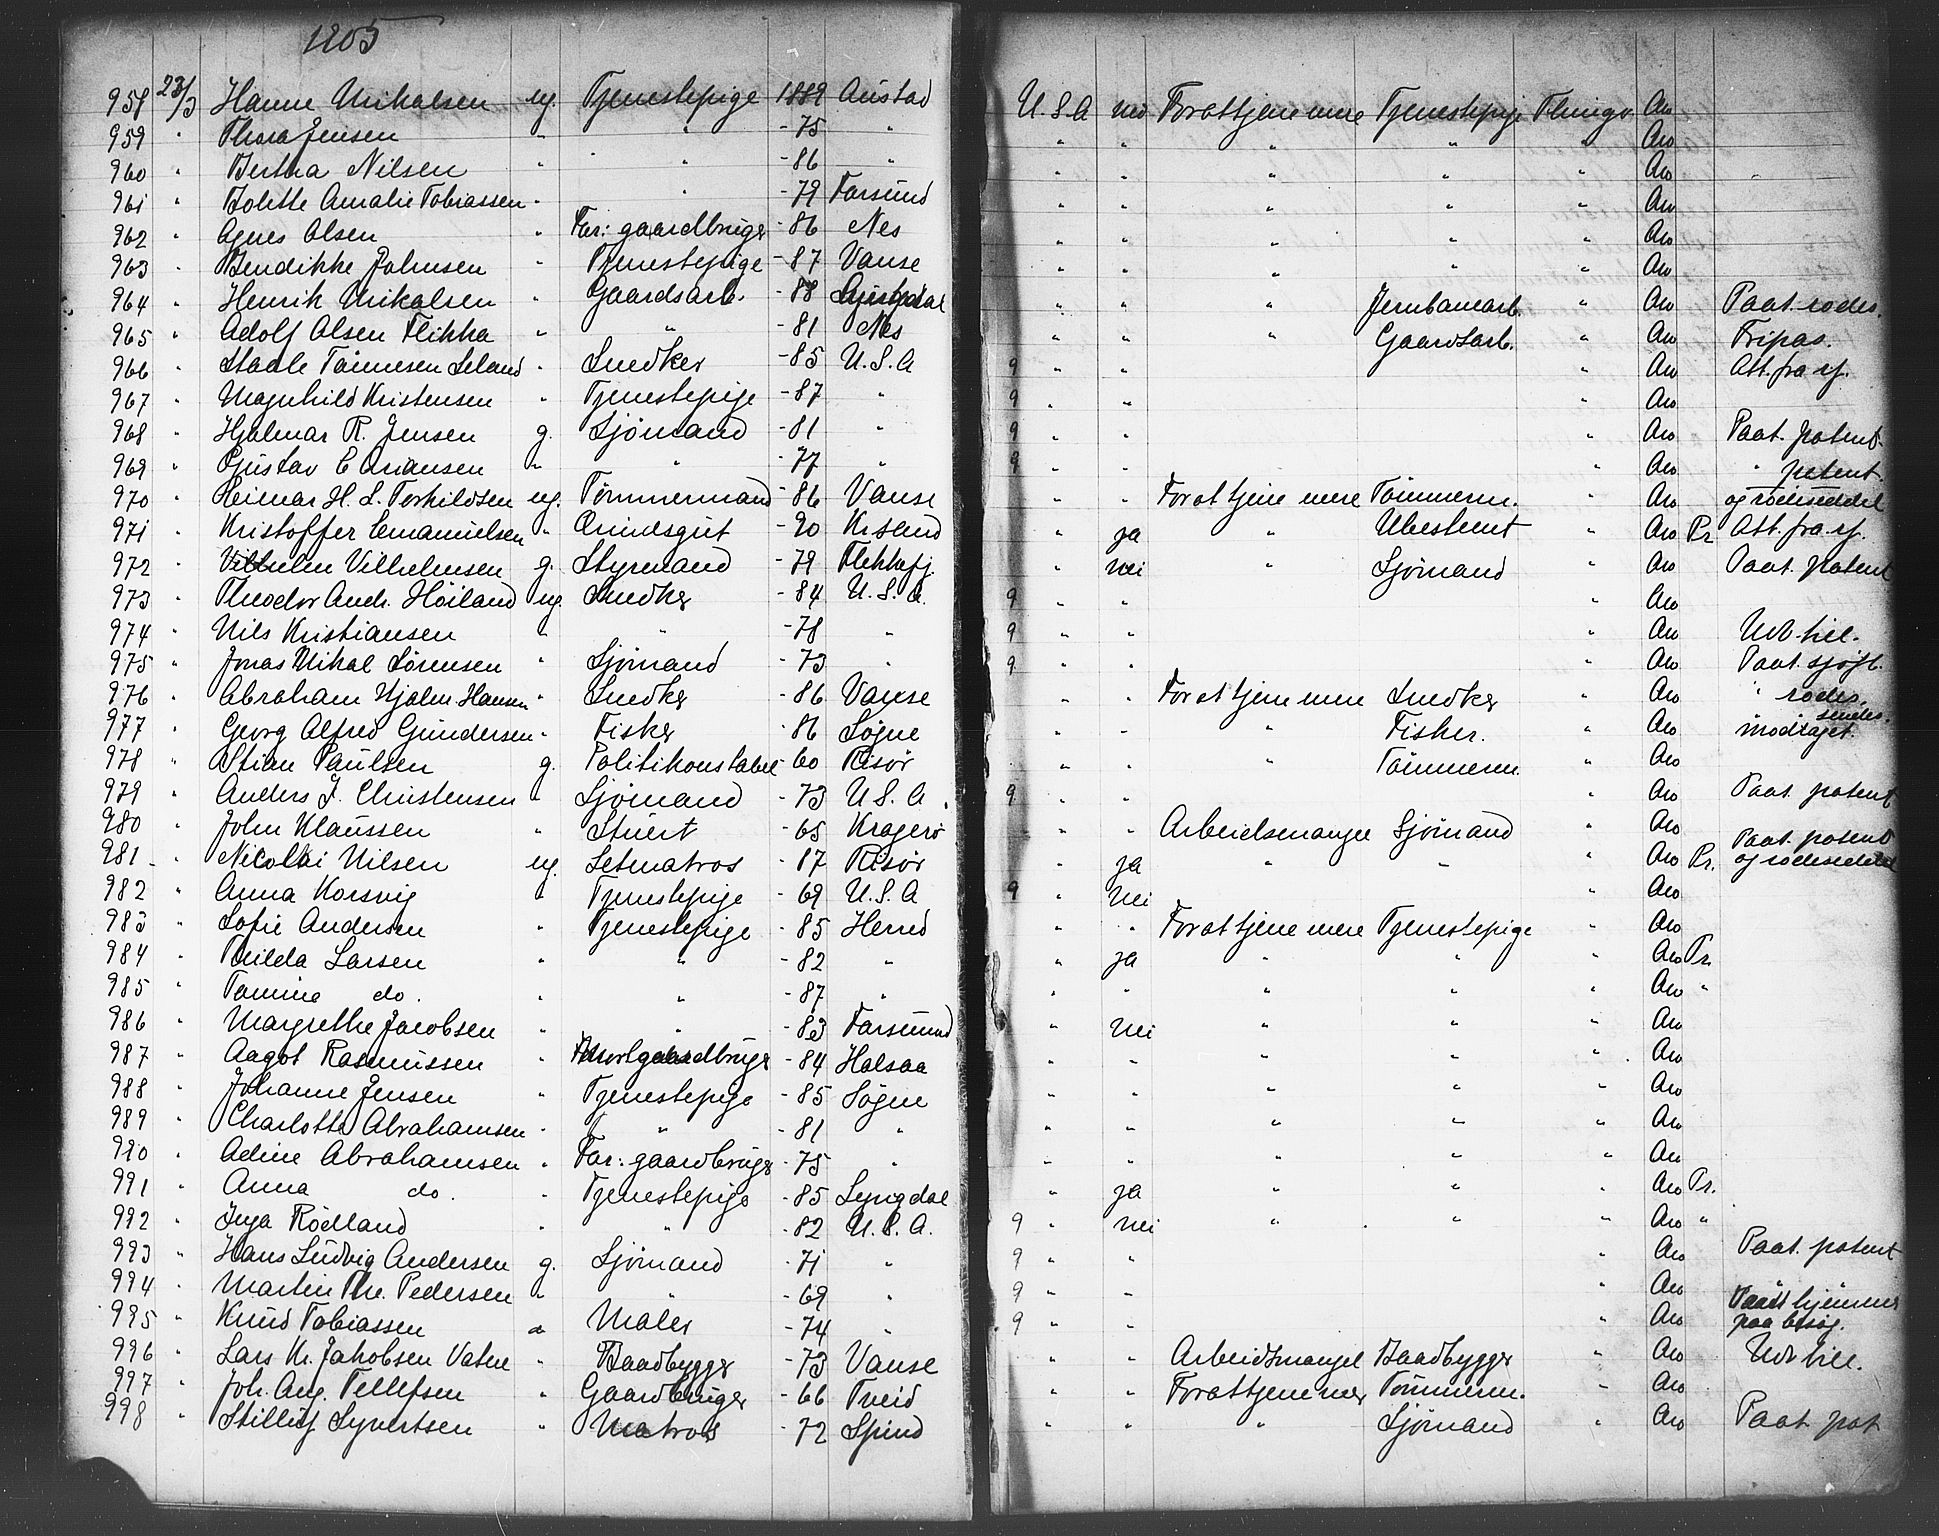 1905
958 23/3 Hanne Mikalsen ug. Tjenestepige 1889 Austad U.S.A nei For at tjene mere Tjenestepige Thingv. Aro
959 " Thora Jensen " " -75 " " " " " " Aro
960 " Bertha Nilsen " " -86 " " " " " " Aro
961 " Bolette Amalie Tobiassen " " -79 Farsund " " " " " Aro
962 " Agnes Olsen " Far: gaardbruger -86 Nes " " " " " Aro
963 " Bendikke Johnsen " Tjenestepige -87 Vanse " " " " " Aro
964 " Henrik Mikalsen " Gaardsarb. -88 " " " Jernbanearb. " Aro Paat. rodes.
965 " Adolf Olsen Flikka " " -81 Nes " " " Gaardsarb. " Aro Fripas.
966 " Staale Tønnesen Leland " Snedker -85 U.S.A 9 " " " Aro Att. fra sf.
967 " Magnhild Kristensen " Tjenestepige -87 " 9 " " Aro
968 " Hjalmar R. Jensen g. Sjömand -81 " 9 " " " Aro Paat. patent
969 " Gustav E Osiansen " " -77 " 9 " " " Aro " patent
970 " Reimar H. L. Terkildsen ug. Tömmermand -86 Vanse " " For at tjene mere Tömmerm. " Aro og rodeseddel
971 " Kristoffer Emanuelsen " Ærindsgut -90 Krsand " ja " Ubestemt " Aro Pr Att. fra sf.
972 " Vilhelm Vilhelmsen g. Styrmand -79 Flekkefj. " nei " Sjömand " Aro Paat. patent
973 " Theodor Andr. Höiland ug. Snedker -84 U.S.A. 9 " " " Aro
974 " Nils Kristiansen " " -78 " 9 " " " Aro Udv till.
975 " Jonas Mikal Sörensen " Sjömand -73 " 9 " " " Aro Paat. sjöfl.
976 " Abraham Hjalm Hansen " Snedker -86 Vanse " " For at tjene mere Snedker " Aro " rodes.
977 " Georg Alfred Gundersen " Fisker -86 Søgne " " " Fisker. " Aro sendes. indraget.
978 " Stian Paulsen g. Politikonstabel -60 Risør " " " Tömmerm. " Aro
979 " Anders J. Christensen " Sjömand -73 U.S.A. 9 " " " Aro Paat. patent
980 " John Klaussen " Stuert -65 Kragerø " " Arbeidsmangel Sjömand " Aro Paat. patent
981 " Nicolai Nilsen ug. Letmatros -87 Risør " ja " " " Aro Pr. og rodeseddel
982 " Anna Korsvig " Tjenestepige -69 U.S.A 9 " nei " Aro
983 " Sofie Andersen " Tjenestepige -85 Herred " " For at tjene mere Tjenestepige " Aro
984 " Thilda Larsen " " -82 " " ja " " " Aro Pr.
985 " Tomine do. " " -87 " " " " " " Aro "
986 " Margrethe Jacobsen " " -83 Farsund " nei " " " Aro
987 " Aagot Rasmussen " -84 Halsaa " " " " " Aro
988 " Johanne Jensen " Tjenestepige -85 Søgne " " " " " Aro
989 " Charlotte Abrahamsen " " -81 " " " " " " Aro
990 " Adine Abrahamsen " Far: gaardbruger -75 " " " " " " Aro
991 " Anna do. " Tjenestepige -85 Lyngdal " ja " " " Aro Pr.
992 " Inga Rödland " " -82 U.S.A. 9 " nei " " " Aro "
993 " Hans Ludvig Andersen g. Sjömand -71 " 9 " " " Aro Paat. patent
994 " Martin Th. Pedersen " " -69 " 9 " " " Aro "
995 " Knud Tobiassen " Maler -74 " 9 " " " Aro Været hjemme paa besøg.
996 " Lars Kr. Jakobsen Vatne " Baadbygger -73 Vanse " " Arbeidsmangel Baadbygger " Aro Udv till.
997 " Joh. Aug. Tellefsen " Gaardbruger -66 Tveid " " For at tjene mer Tömmerm. " Aro
998 " Stilluf Syvertsen " Matros -72 Spind " " " Sjömand " Aro Paat pat